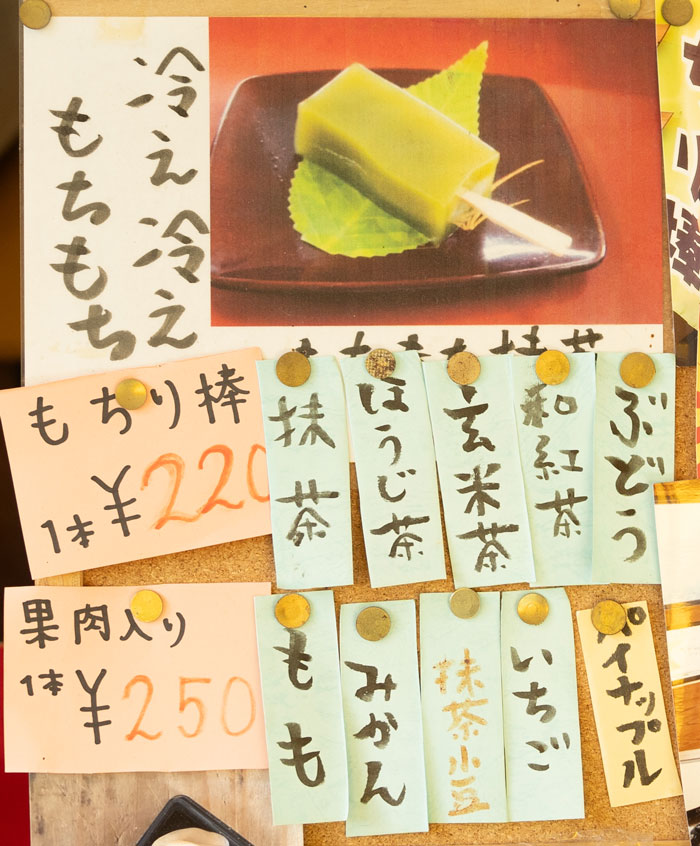 冷え冷え
もちもち
もちり棒
1本 ¥220
抹茶
ほうじ茶
玄米茶
和紅茶
ぶどう
果肉入り
1本 ¥250
もも
みかん
抹茶小豆
いちご
パイナップル